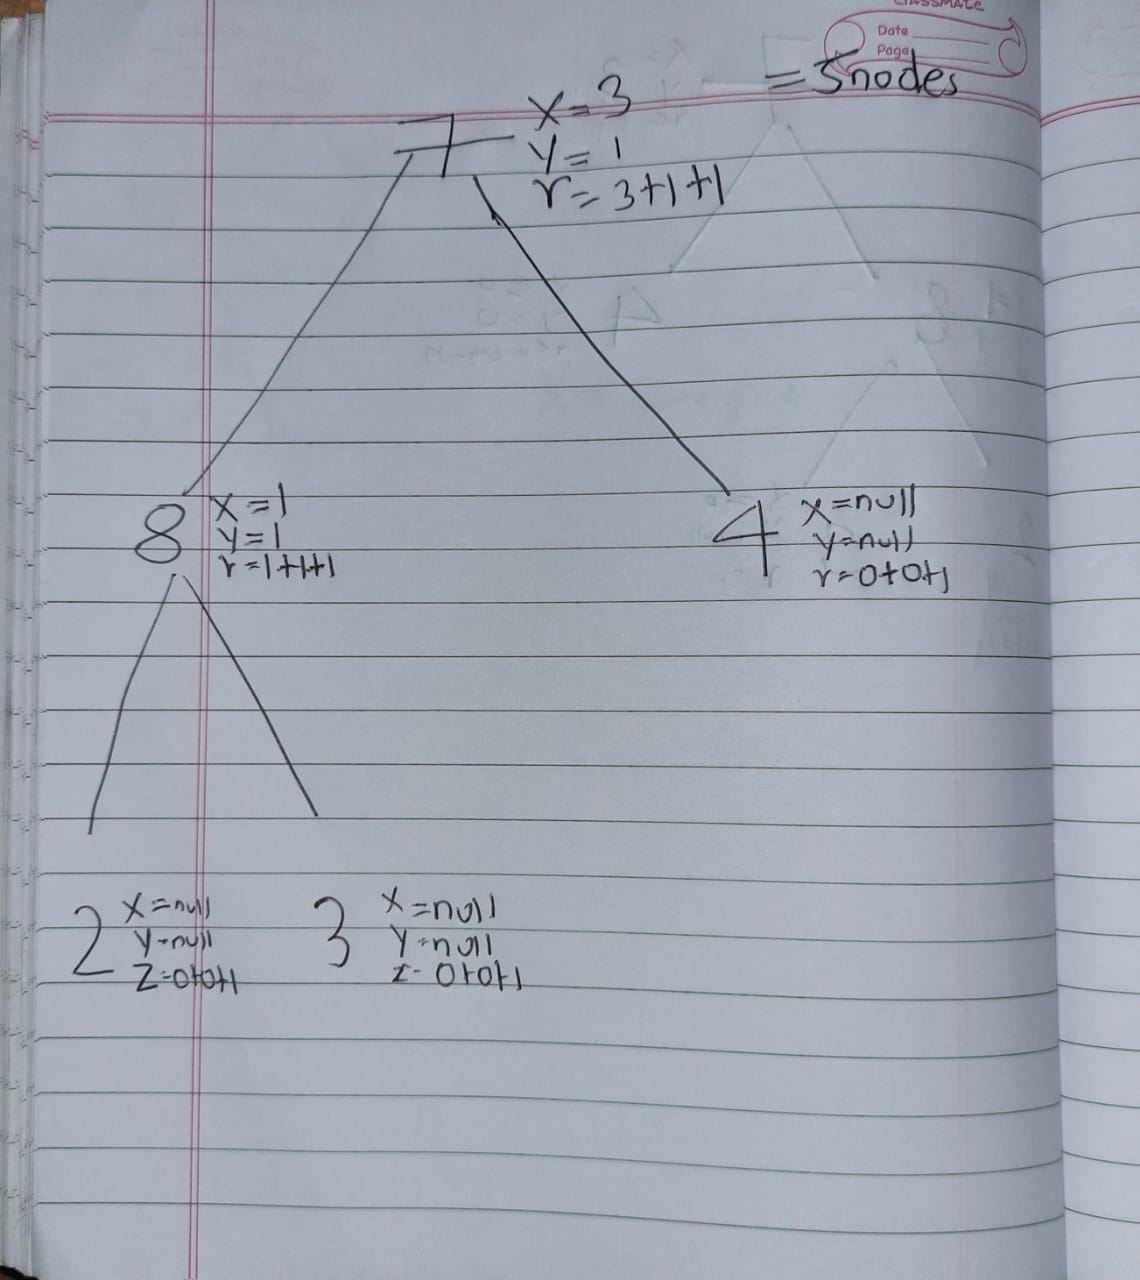 classmate
Date
Page
= 5 nodes
7
x = 3
y = 1
r = 3+1+1
8
x = 1
y = 1
r = 1+1+1
4
x = null
y = null
r = 0+0+1
2
x = null
y = null
z = 0+0+1
3
x = null
y = null
z = 0+0+1